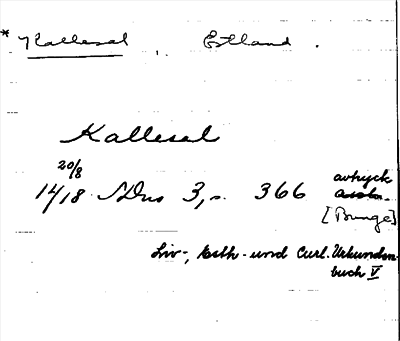 * Kallesal, Estland.
Kallesal
20/8
14/18 SDns 3, s. 366 avtryck
[Bunge]
Liv-, Esth- und Curl. Urkunden-
buch V